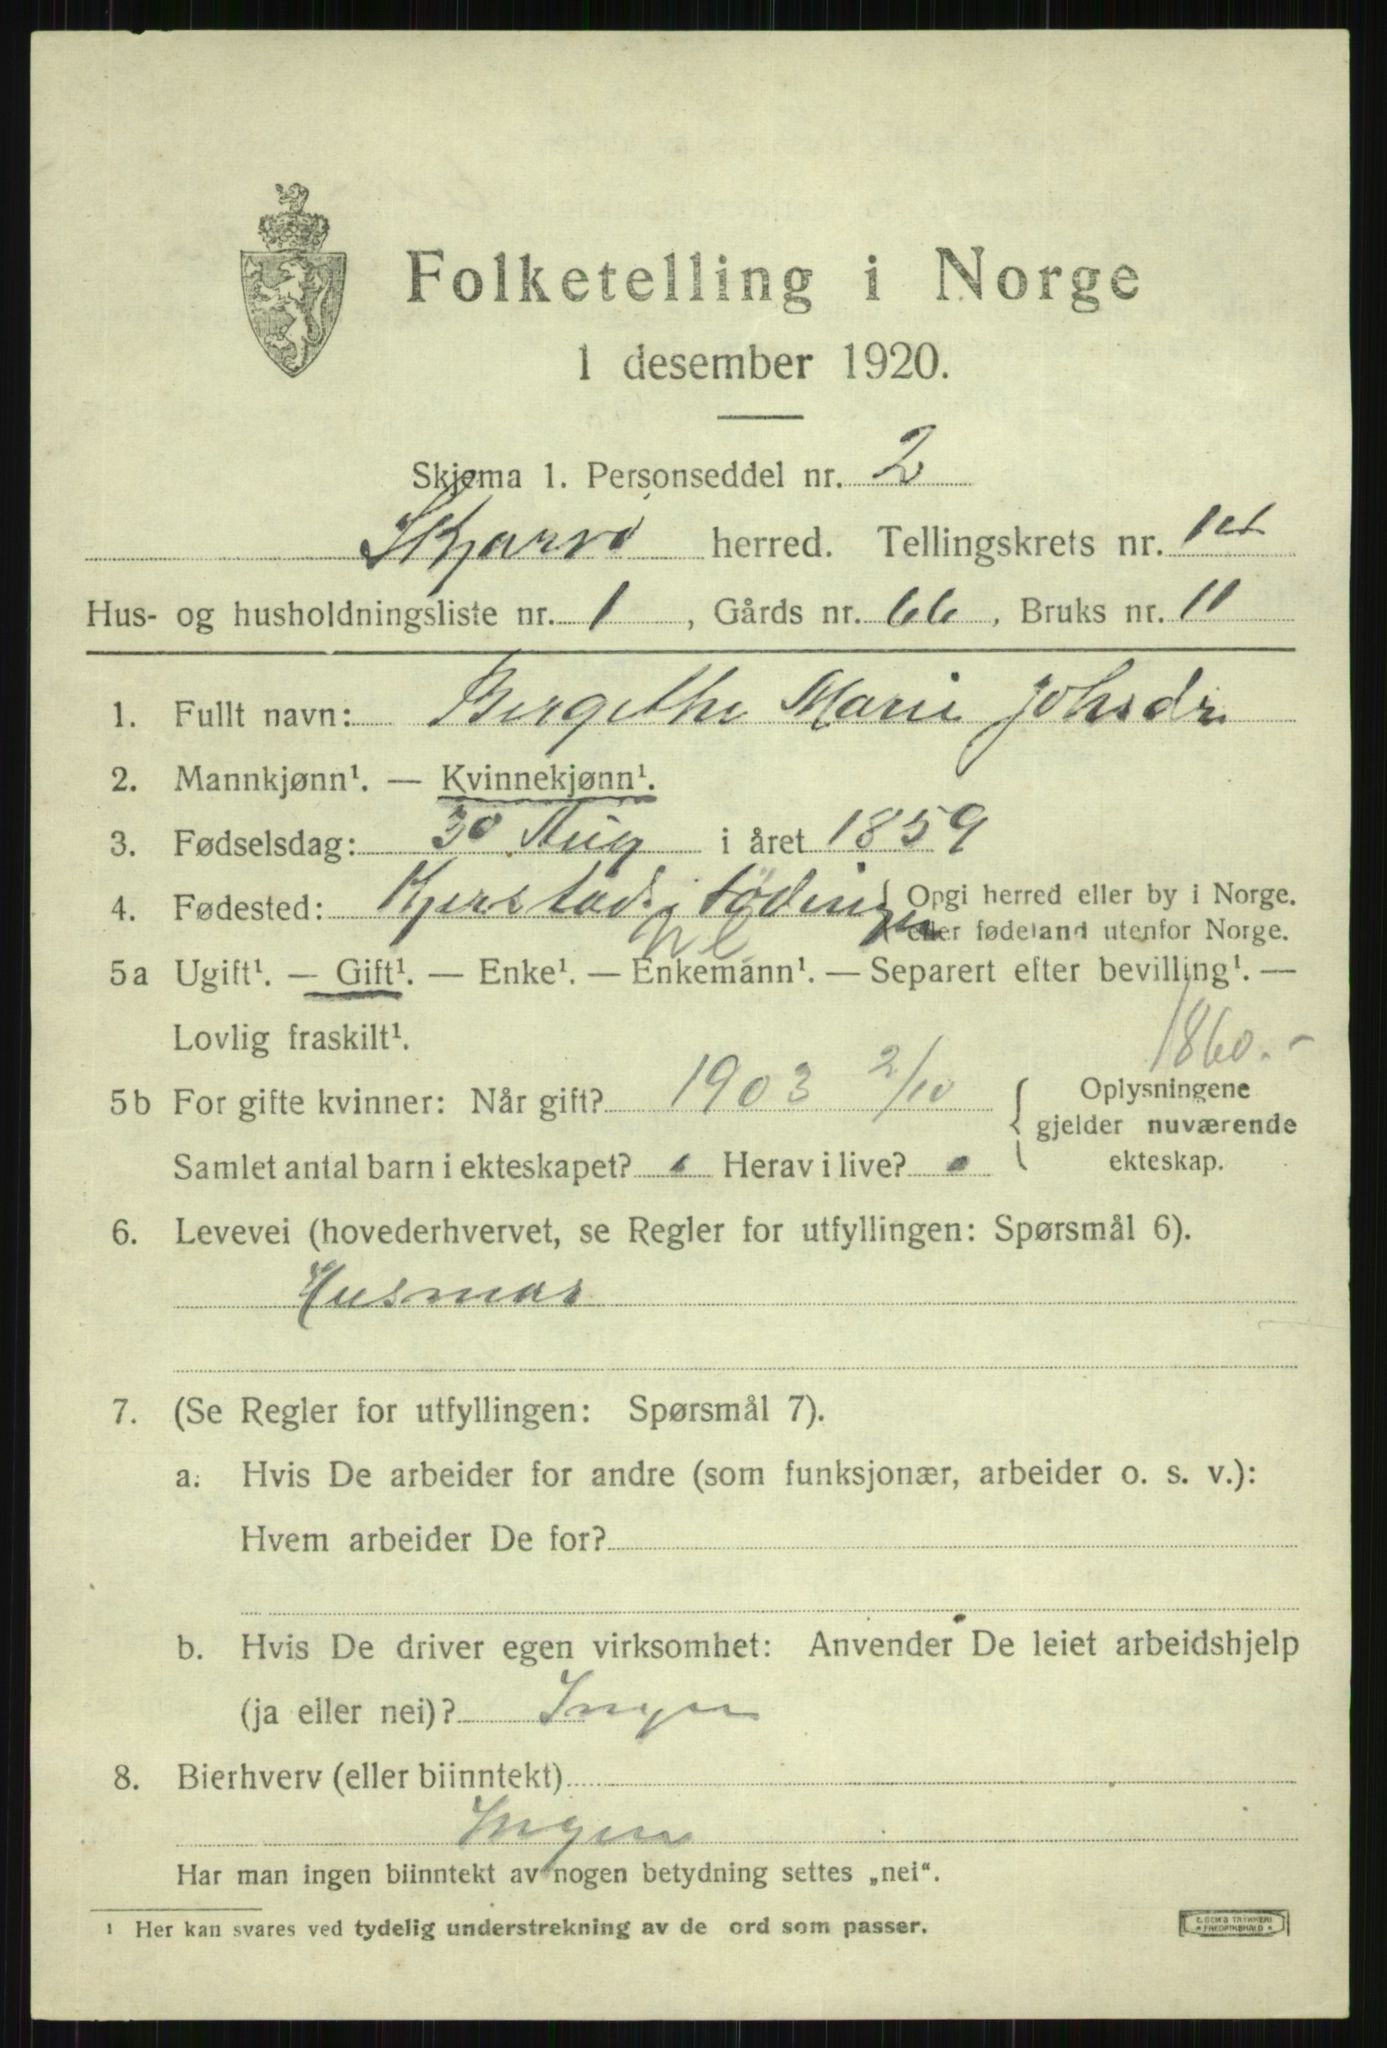 Folketelling i Norge
1 desember 1920.
Skjema 1. Personseddel nr. 2
Skjervø herred. Tellingskrets nr. 1ste
Hus- og husholdningsliste nr. 1, Gårds nr. 66, Bruks nr. 11
1. Fullt navn: Bergethe Marie Johsdr
2. Mannkjønn¹. — Kvinnekjønn¹.
3. Fødselsdag: 30 Aug i året 1859
4. Fødested: Kjerstad i Lødingen { Opgi herred eller by i Norge.
eller fødeland utenfor Norge.
5a Ugift¹. — Gift¹. — Enke¹. — Enkemann¹. — Separert efter bevilling¹. —
Lovlig fraskilt¹.
1860.-
5b For gifte kvinner: Når gift? 1903 2/10 { Oplysningene
gjelder nuværende
Samlet antal barn i ekteskapet? Herav i live? ekteskap.
6. Levevei (hovederhvervet, se Regler for utfyllingen: Spørsmål 6).
Husmor
7. (Se Regler for utfyllingen: Spørsmål 7).
a. Hvis De arbeider for andre (som funksjonær, arbeider o. s. v.):
Hvem arbeider De for?
b. Hvis De driver egen virksomhet: Anvender De leiet arbeidshjelp
(ja eller nei)? Ingen
8. Bierhverv (eller biinntekt)
Ingen
Har man ingen biinntekt av nogen betydning settes „nei“.
¹ Her kan svares ved tydelig understrekning av de ord som passer.
E. SEM'S TRYKKERI
* FREDRIKSHALD *